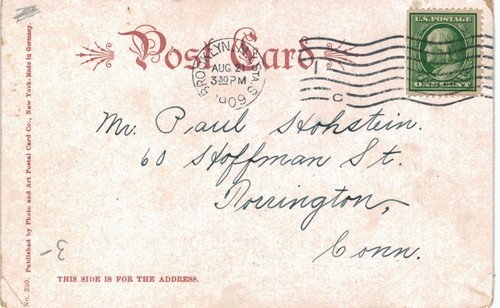 Post Card
U.S. POSTAGE
ONE CENT
BROOKLYN, N.Y. STA. S
AUG 21
3 30 PM
1909
C
Mr. Paul Hohstein.
60 Hoffman St.
Torrington,
Conn.
3-
THIS SIDE IS FOR THE ADDRESS.
No. 350. Published by Photo and Art Postal Card Co., New York-Made in Germany.